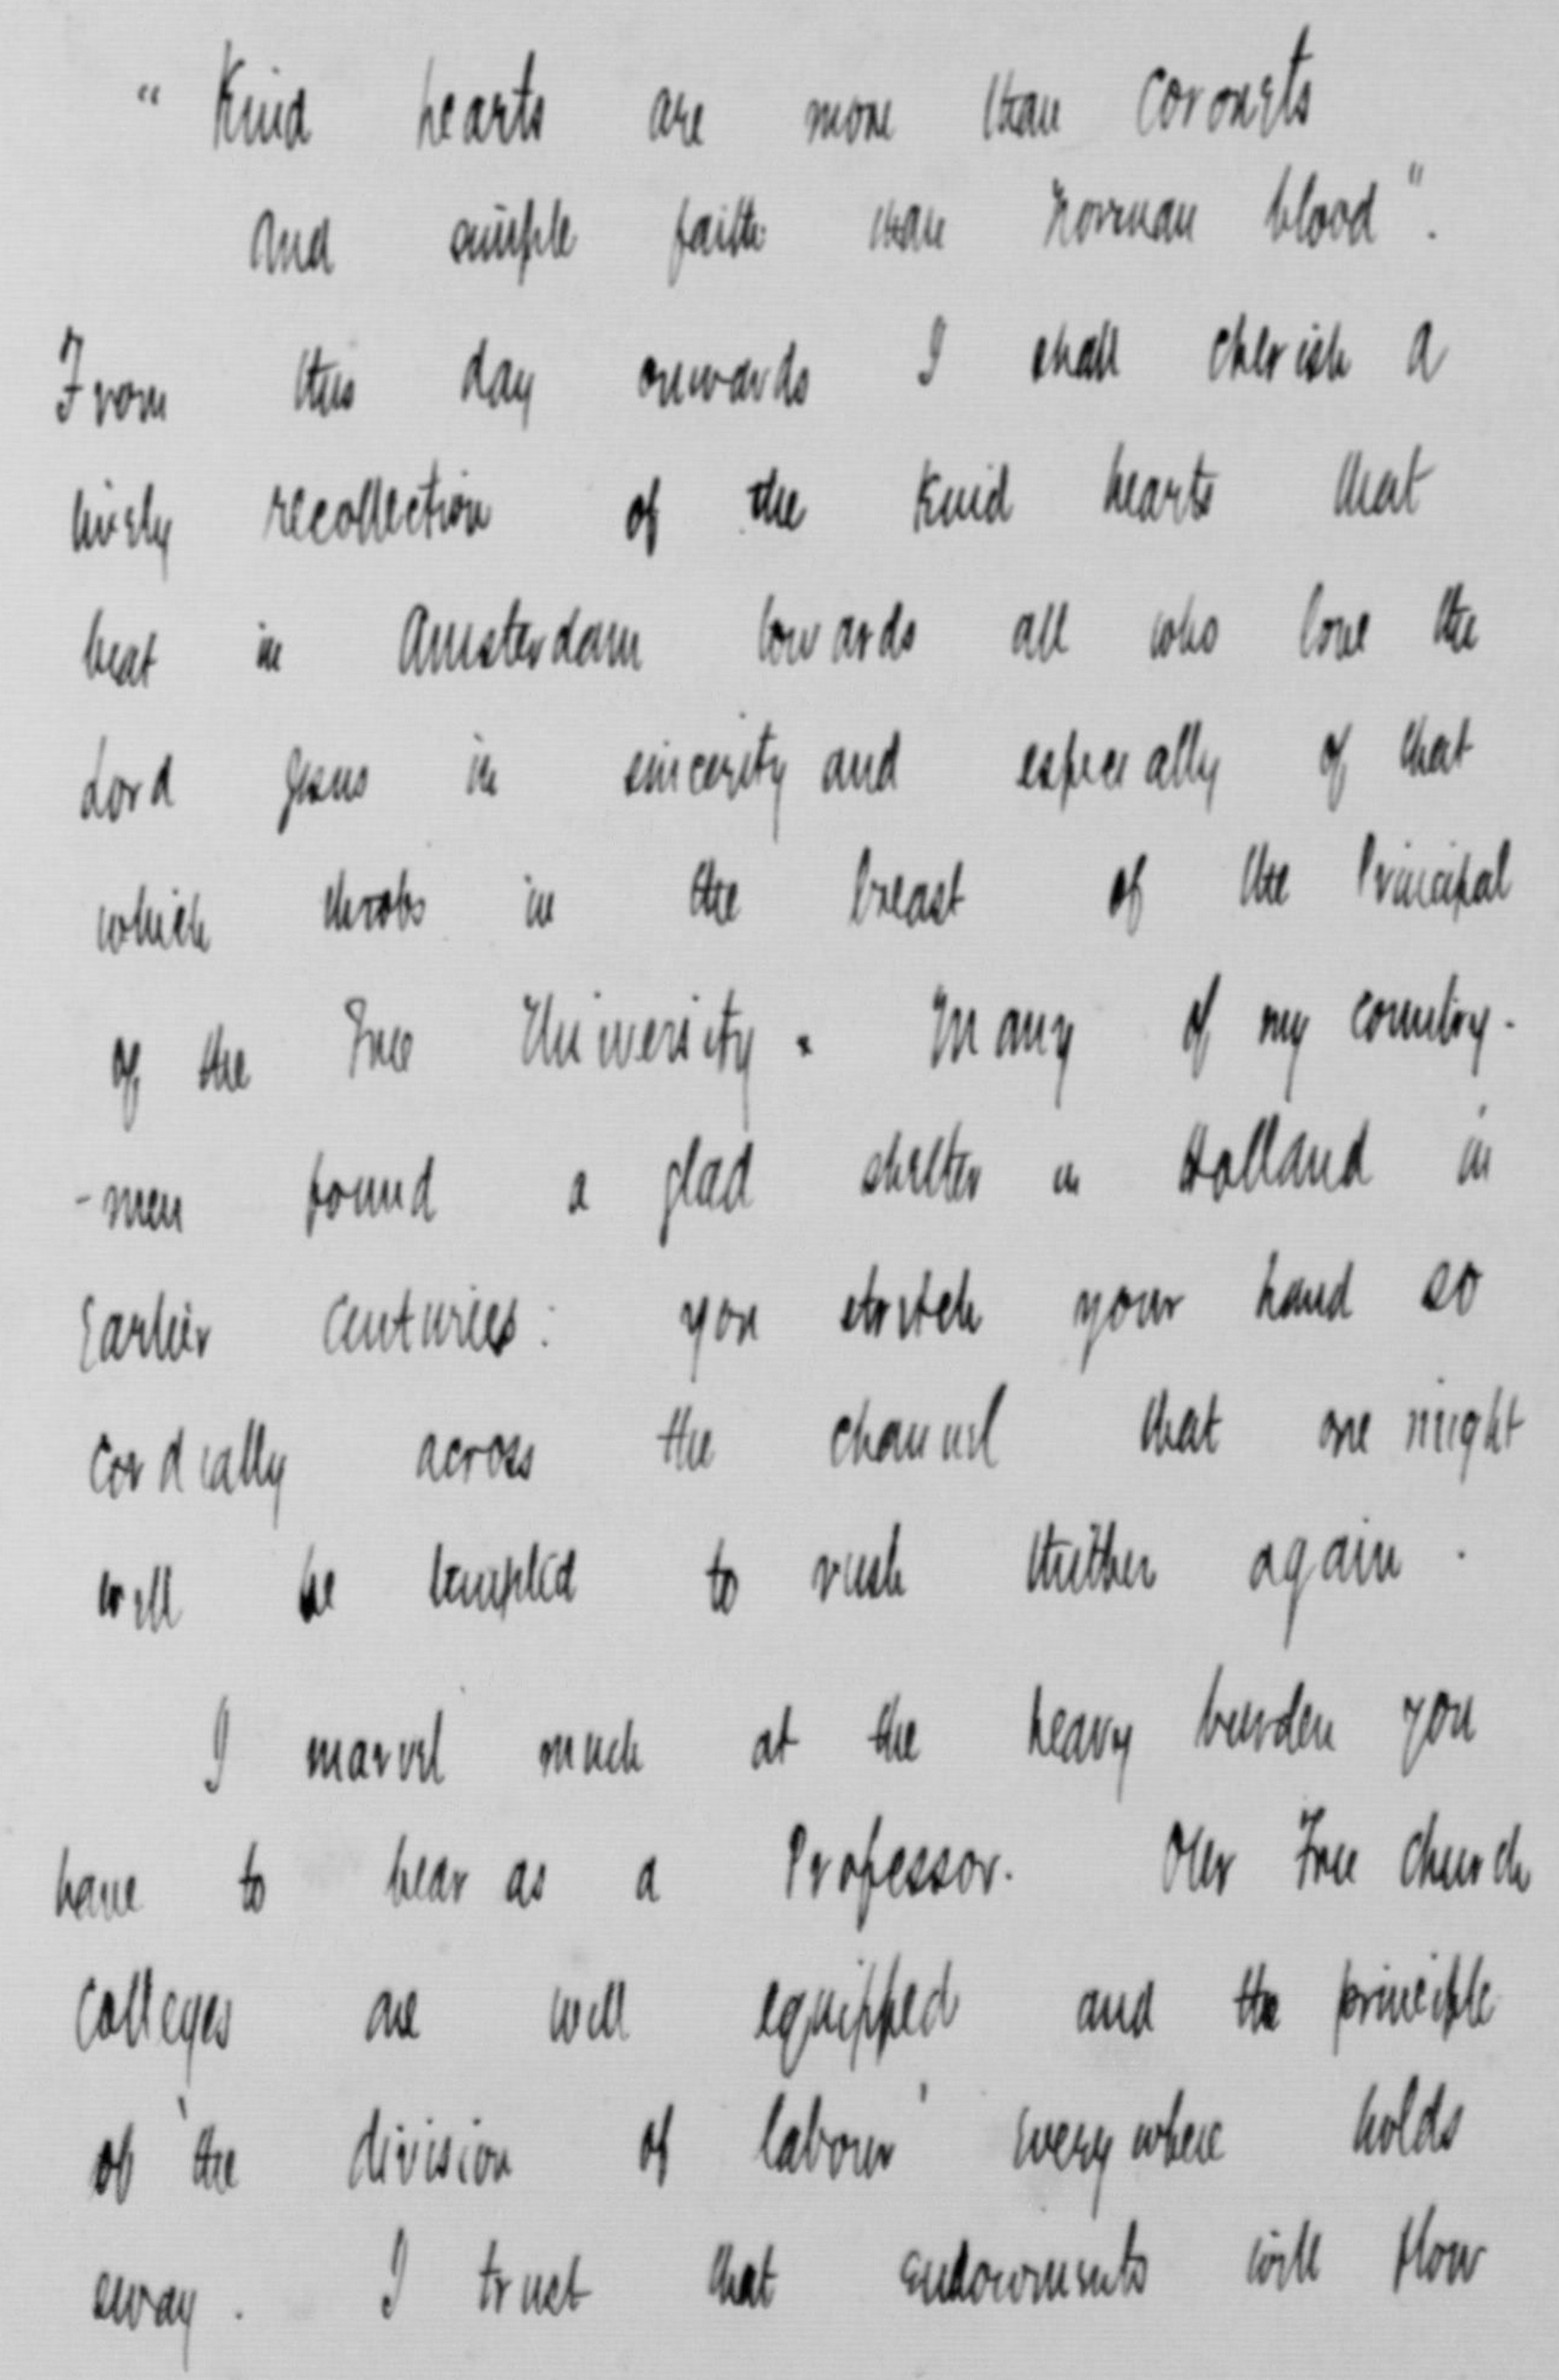 "Kind hearts are more than coronets
And simple faith than Norman blood".
From this day onwards I shall cherish a
lively recollection of the kind hearts that
beat in Amsterdam towards all who love the
Lord Jesus in sincerity and especially of that
which throbs in the breast of the Principal
of the Free University. Many of my country-
-men found a glad shelter in Holland in
Earlier centuries: you stretch your hand so
cordially across the channel that one might
well be tempted to rush thither again.
I marvel much at the heavy burden you
have to bear as a Professor. Our Free Church
Colleges are well equipped and the principle
of 'the division of labour' everywhere holds
sway. I trust that endowments will flow